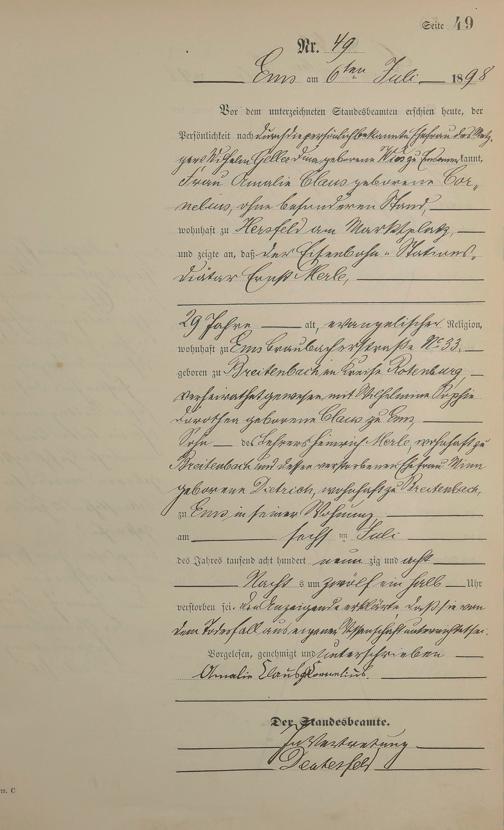 Seite 49
Nr. 49
Ems am 6ten Juli 1898
Vor dem unterzeichneten Standesbeamten erschien heute, der
Persönlichkeit nach durch die persönlich bekannte Ehefrau des Metz-
gers Wilhelm geborene zu Ems kannt,
Frau Amalie Claus geborene Cor-
nelius, ohne besonderen Stand,
wohnhaft zu Hersfeld am Marktplatz,
und zeigte an, daß der Eisenbahn-Stations-
Diätar Ernst Merle,
29 Jahre alt, evangelischer Religion,
wohnhaft zu Ems Braubacherstraße No 33,
geboren zu Breitenbach im Kreise Rotenburg,
verheirathet gewesen mit Wilhelmine Sophie
Dorothea geborene Claus zu Ems
Sohn des Lehrers Heinrich Merle, wohnhaft zu
Breitenbach und dessen verstorbener Ehefrau Anna
geborene Dietrich, wohnhaft zu Breitenbach,
zu Ems in seiner Wohnung
am sechs ten Juli
des Jahres tausend acht hundert neun zig und acht
Nacht s um zwölf ein halb Uhr
verstorben sei. Die Anzeigende erklärte, daß sie von
dem Todesfall aus eigener Wissenschaft unterrichtet sei.
Vorgelesen, genehmigt und unterschrieben
Amalie Claus Cornelius
Der Standesbeamte.
In Vertretung